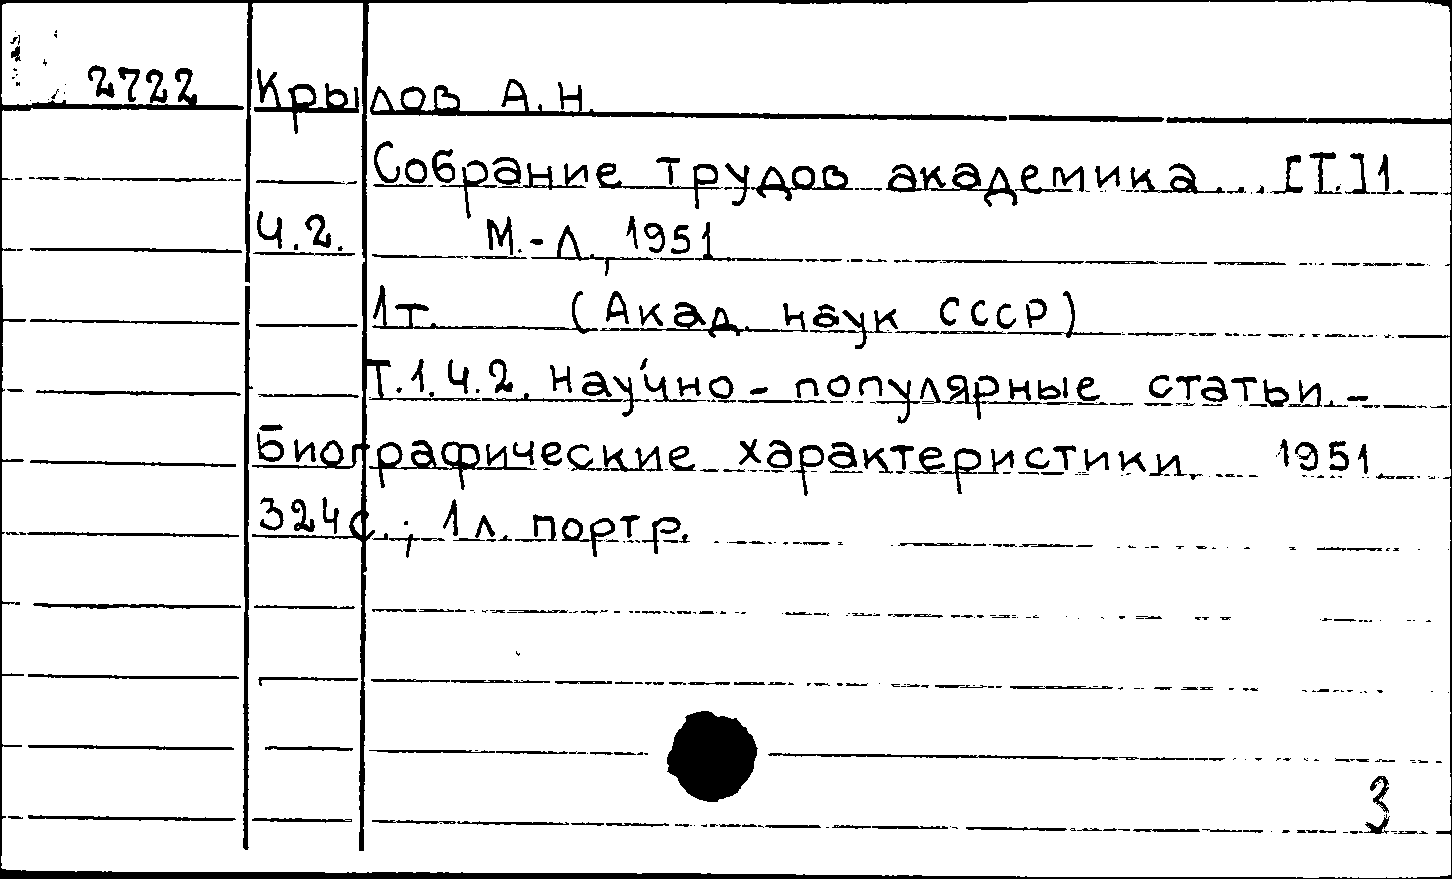 2722 Крылов А.Н.
Собрание трудов академика... [Т.]1
Ч.2. М.-Л., 1951
1т. (Акад. наук СССР)
Т.1.Ч.2. Научно-популярные статьи.-
Биографические характеристики. 1951.
324с.; 1л. портр.
3